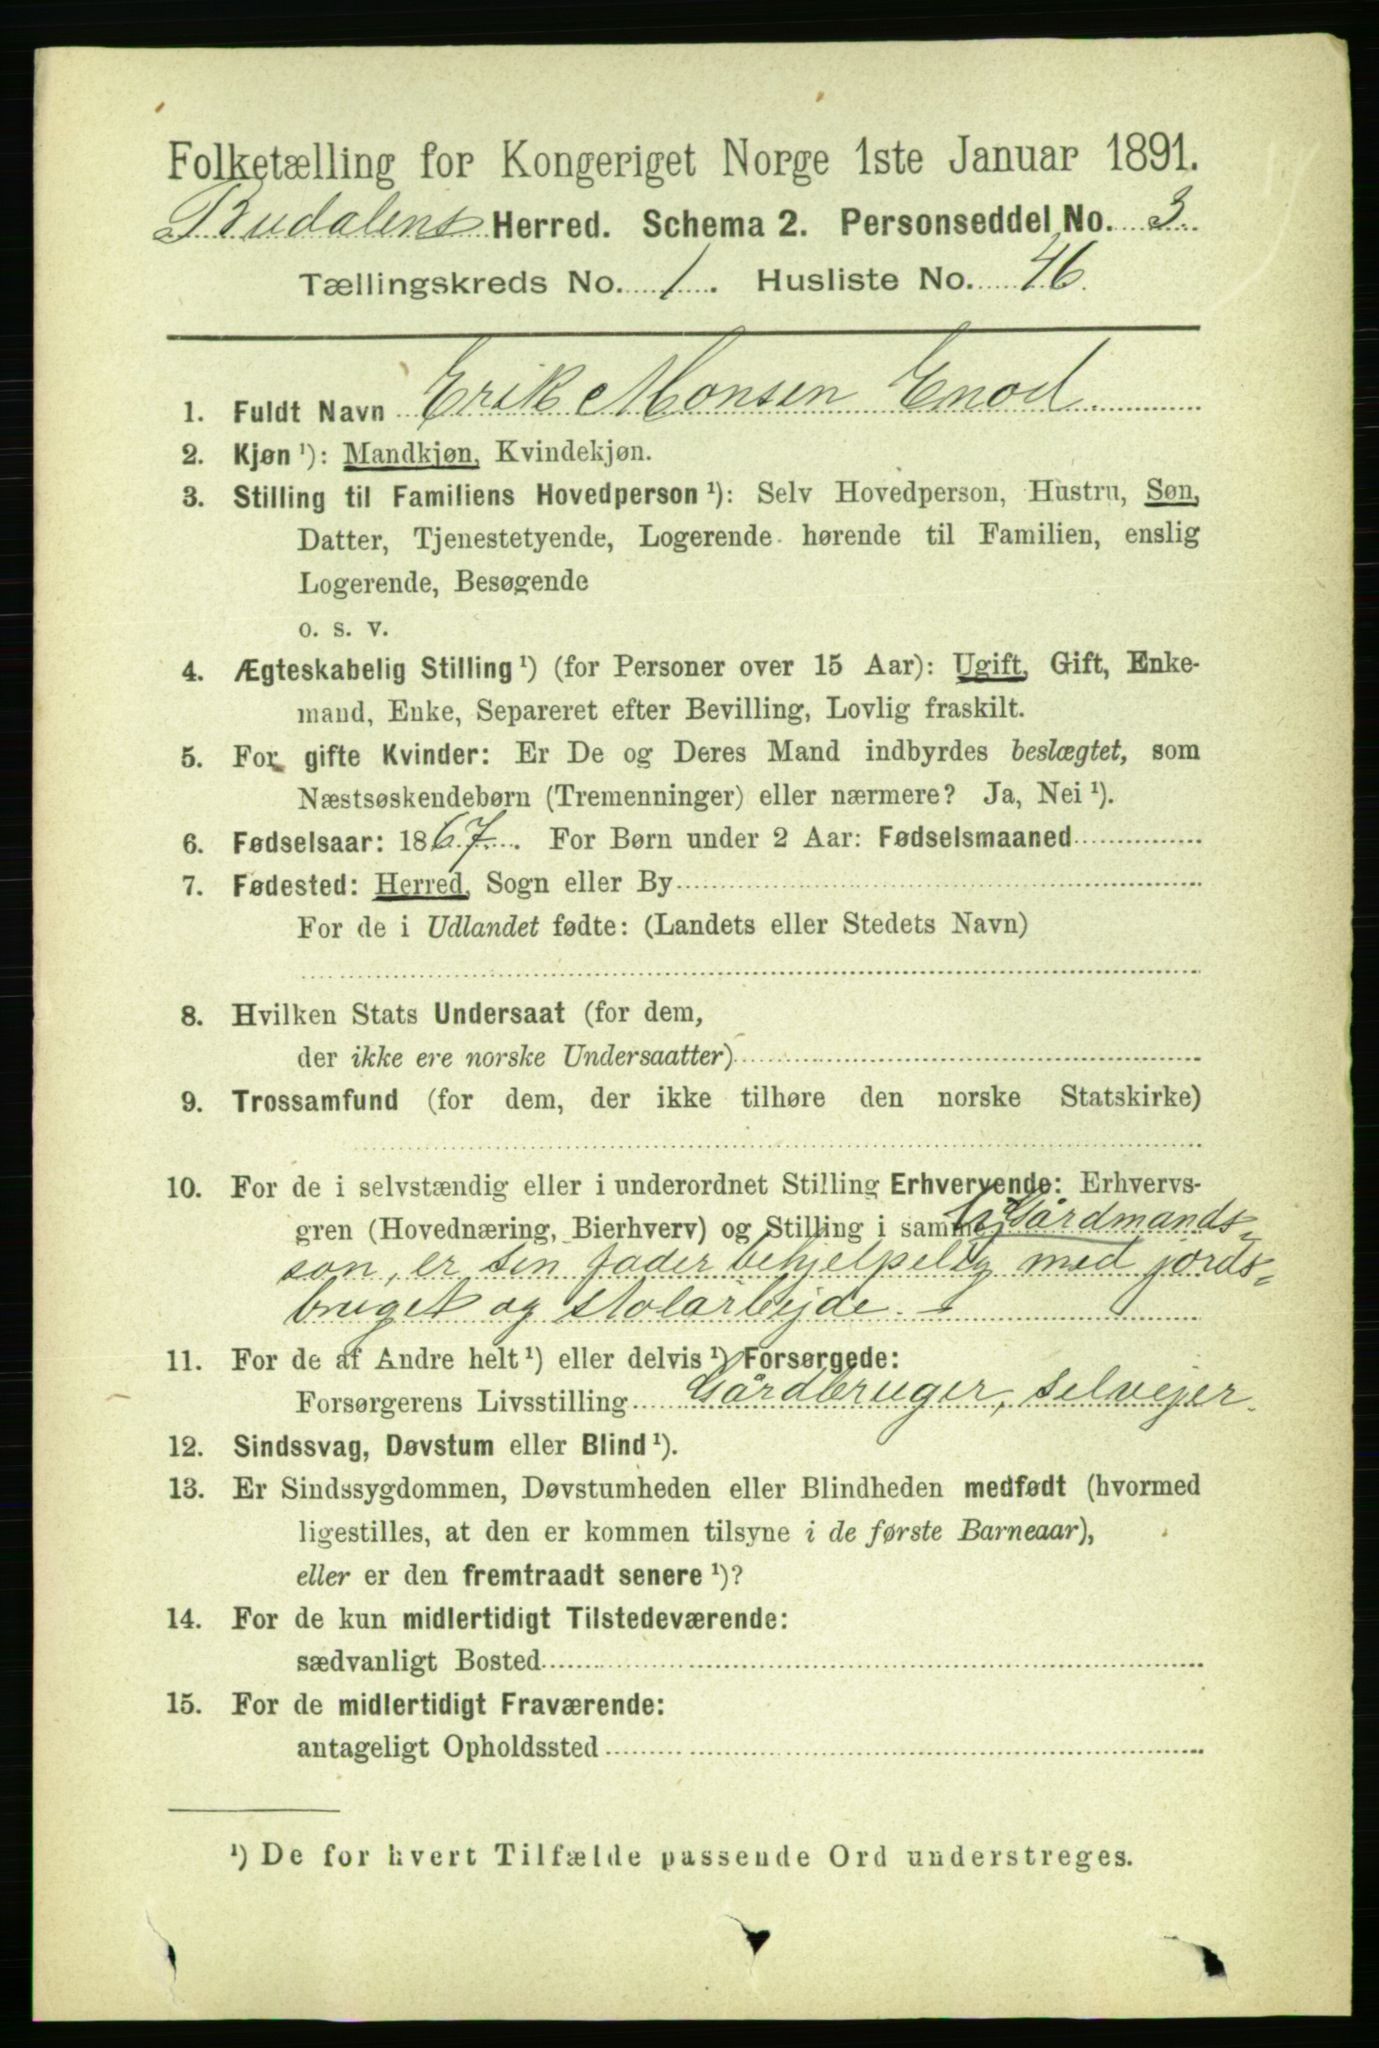 Folketælling for Kongeriget Norge 1ste Januar 1891.
Budalens Herred. Schema 2. Personseddel No. 3.
Tællingskreds No. 1. Husliste No. 46.
1. Fuldt Navn Erik Monsen Enod
2. Kjøn ¹): Mandkjøn, Kvindekjøn.
3. Stilling til Familiens Hovedperson ¹): Selv Hovedperson, Hustru, Søn,
Datter, Tjenestetyende, Logerende hørende til Familien, enslig
Logerende, Besøgende
o. s. v.
4. Ægteskabelig Stilling ¹) (for Personer over 15 Aar): Ugift, Gift, Enke-
mand, Enke, Separeret efter Bevilling, Lovlig fraskilt.
5. For gifte Kvinder: Er De og Deres Mand indbyrdes beslægtet, som
Næstsøskendebørn (Tremenninger) eller nærmere? Ja, Nei ¹).
6. Fødselsaar: 1867. For Børn under 2 Aar: Fødselsmaaned
7. Fødested: Herred, Sogn eller By
For de i Udlandet fødte: (Landets eller Stedets Navn)
8. Hvilken Stats Undersaat (for dem,
der ikke ere norske Undersaatter)
9. Trossamfund (for dem, der ikke tilhøre den norske Statskirke)
10. For de i selvstændig eller i underordnet Stilling Erhvervende: Erhvervs-
gren (Hovednæring, Bierhverv) og Stilling i samme Gårdmands-
son, er sin fader behjelpelig med jords-
bruget og stolarbejde. -
11. For de af Andre helt ¹) eller delvis ¹) Forsørgede:
Forsørgerens Livsstilling Gårdbruger, selvejer.
12. Sindssvag, Døvstum eller Blind ¹).
13. Er Sindssygdommen, Døvstumheden eller Blindheden medfødt (hvormed
ligestilles, at den er kommen tilsyne i de første Barneaar),
eller er den fremtraadt senere ¹)?
14. For de kun midlertidigt Tilstedeværende:
sædvanligt Bosted
15. For de midlertidigt Fraværende:
antageligt Opholdssted
¹) De for hvert Tilfælde passende Ord understreges.